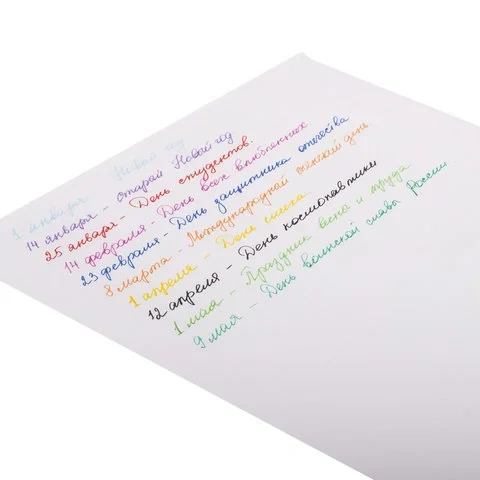 1 января - Новый год
14 января - старый Новый год
25 января - День студентов.
14 февраля - День всех влюбленных
23 февраля - День защитника отечества
8 марта - Международный женский день
1 апреля - День смеха
12 апреля - День космонавтики
1 мая - Праздник весна и труда
9 мая - День воинской славы России